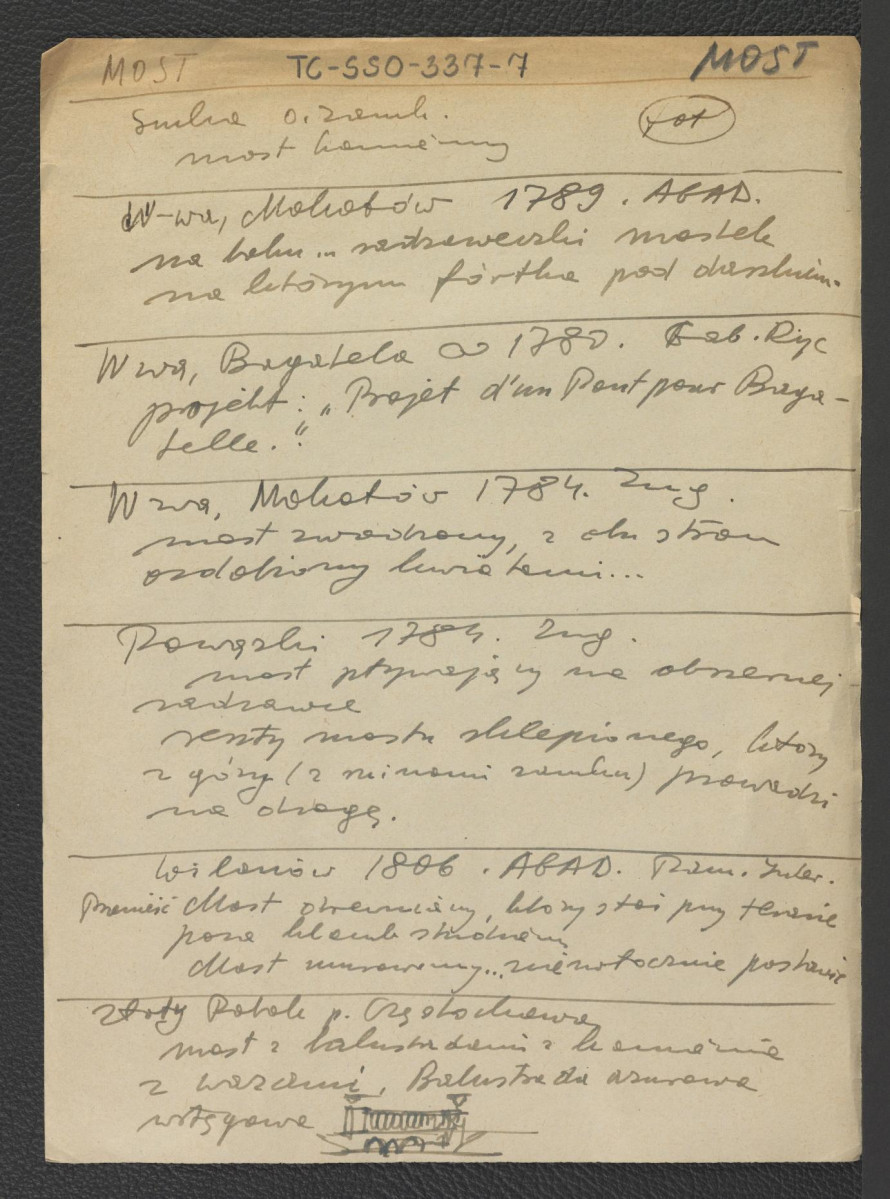 MOST TC-SSO-337-7 MOST
Sucha o. zamk. fot
most kamienny
W-wa, Mokotów 1789. AGAD.
na boku... sadzaweczki mostek
na którym fórtka pod daszkiem.
W wa, Bagatela ∞ 1780. Gab. Ryc
projekt: „Projet d'un Pont pour Baga-
telle."
W wa, Mokotów 1784. Zug.
most zwodzony, z obu stron
ozdobiony kwiatami...
Powązki 1784. Zug.
most pływający na obszernej
sadzawce
reszty mostu sklepionego, który
z góry (z ruinami zamku) prowadzi
na drogę.
Wilanów 1806. AGAD. Inter.
Przenieść Most drewniany, który stoi przy terenie
poza klomb
Most murowany... niezwłocznie postawić
Złoty Potok p. Częstochową
most z balustradami z kamienia
z wazami, Balustrada ażurowa
wstęgowa